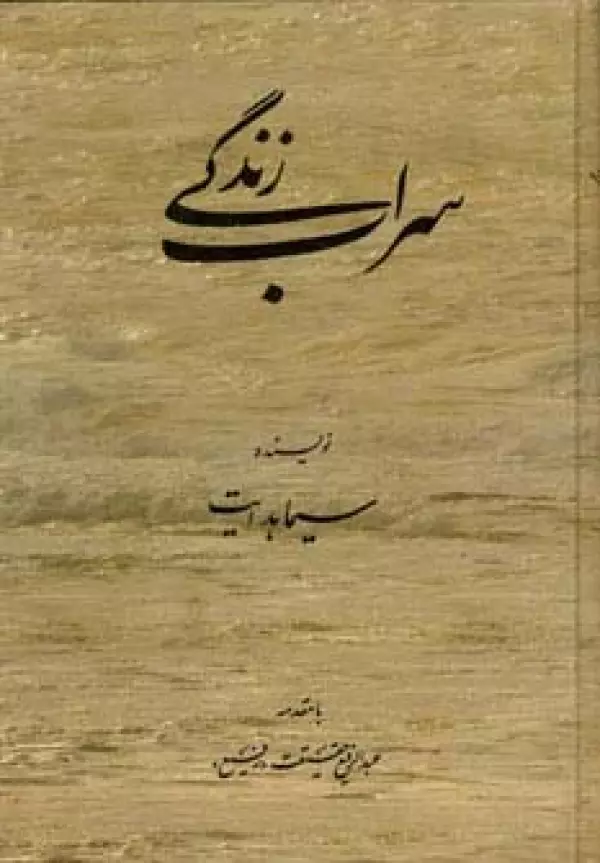 سراب زندگی
نویسنده
سیما هدایت
با مقدمه
عبدالرفیع حقیقت «رفیع»